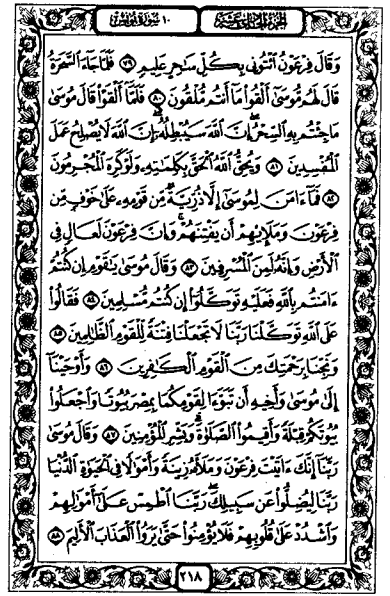 الجزء الحادي عشر ١٠ سورة يونس
وَقَالَ فِرْعَوْنُ ٱئْتُونِى بِكُلِّ سَٰحِرٍ عَلِيمٍ ۝٧٩ فَلَمَّا جَآءَ ٱلسَّحَرَةُ
قَالَ لَهُم مُّوسَىٰٓ أَلْقُوا۟ مَآ أَنتُم مُّلْقُونَ ۝٨٠ فَلَمَّآ أَلْقَوْا۟ قَالَ مُوسَىٰ
مَا جِئْتُم بِهِ ٱلسِّحْرُ إِنَّ ٱللَّهَ سَيُبْطِلُهُۥٓ إِنَّ ٱللَّهَ لَا يُصْلِحُ عَمَلَ
ٱلْمُفْسِدِينَ ۝٨١ وَيُحِقُّ ٱللَّهُ ٱلْحَقَّ بِكَلِمَٰتِهِۦ وَلَوْ كَرِهَ ٱلْمُجْرِمُونَ
۝٨٢ فَمَآ ءَامَنَ لِمُوسَىٰٓ إِلَّا ذُرِّيَّةٌ مِّن قَوْمِهِۦ عَلَىٰ خَوْفٍ مِّن
فِرْعَوْنَ وَمَلَإِي۟هِمْ أَن يَفْتِنَهُمْ وَإِنَّ فِرْعَوْنَ لَعَالٍ فِى
ٱلْأَرْضِ وَإِنَّهُۥ لَمِنَ ٱلْمُسْرِفِينَ ۝٨٣ وَقَالَ مُوسَىٰ يَٰقَوْمِ إِن كُنتُمْ
ءَامَنتُم بِٱللَّهِ فَعَلَيْهِ تَوَكَّلُوٓا۟ إِن كُنتُم مُّسْلِمِينَ ۝٨٤ فَقَالُوا۟
عَلَى ٱللَّهِ تَوَكَّلْنَا رَبَّنَا لَا تَجْعَلْنَا فِتْنَةً لِّلْقَوْمِ ٱلظَّٰلِمِينَ ۝٨٥
وَنَجِّنَا بِرَحْمَتِكَ مِنَ ٱلْقَوْمِ ٱلْكَٰفِرِينَ ۝٨٦ وَأَوْحَيْنَآ
إِلَىٰ مُوسَىٰ وَأَخِيهِ أَن تَبَوَّءَا لِقَوْمِكُمَا بِمِصْرَ بُيُوتًا وَٱجْعَلُوا۟
بُيُوتَكُمْ قِبْلَةً وَأَقِيمُوا۟ ٱلصَّلَوٰةَ وَبَشِّرِ ٱلْمُؤْمِنِينَ ۝٨٧ وَقَالَ مُوسَىٰ
رَبَّنَآ إِنَّكَ ءَاتَيْتَ فِرْعَوْنَ وَمَلَأَهُۥ زِينَةً وَأَمْوَٰلًا فِى ٱلْحَيَوٰةِ ٱلدُّنْيَا
رَبَّنَا لِيُضِلُّوا۟ عَن سَبِيلِكَ رَبَّنَا ٱطْمِسْ عَلَىٰٓ أَمْوَٰلِهِمْ
وَٱشْدُدْ عَلَىٰ قُلُوبِهِمْ فَلَا يُؤْمِنُوا۟ حَتَّىٰ يَرَوُا۟ ٱلْعَذَابَ ٱلْأَلِيمَ ۝٨٨
٢١٨